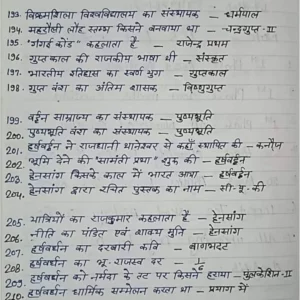 193. विक्रमशिला विश्वविद्यालय का संस्थापक - धर्मपाल
194. महरौली लौह स्तम्भ किसने बनवाया था - चन्द्रगुप्त-II
195. कहलाता है - राजेन्द्र प्रथम
196. गुप्तकाल की राजकीय भाषा थी - संस्कृत
197. भारतीय इतिहास का स्वर्ण युग - गुप्तकाल
198. गुप्त वंश का अंतिम शासक - विष्णुगुप्त
199. वर्द्धन साम्राज्य का संस्थापक - पुष्यभूति
200. पुष्यभूति वंश का संस्थापक - पुष्यभूति
201. हर्षवर्धन ने राजधानी थानेश्वर से कहाँ स्थापित की - कन्नौज
202. भूमि देने की 'सामंती प्रथा' शुरू की - हर्षवर्द्धन
203. हेनसांग किसके काल में भारत आया - हर्षवर्द्धन
204. हेनसांग द्वारा रचित पुस्तक का नाम - सी-यू-की
205. यात्रियों का राजकुमार कहलाता है - हेनसांग
206. नीति का पंडित एवं शाक्य मुनि - हेनसांग
207. हर्षवर्धन का दरबारी कवि - बाणभट्ट
208. हर्षवर्धन का भू-राजस्व दर - 1/6
209. हर्षवर्धन को नर्मदा के तट पर किसने हराया - पुलकेशिन-II
210. हर्षवर्धन धार्मिक सम्मेलन करता था - प्रयाग में